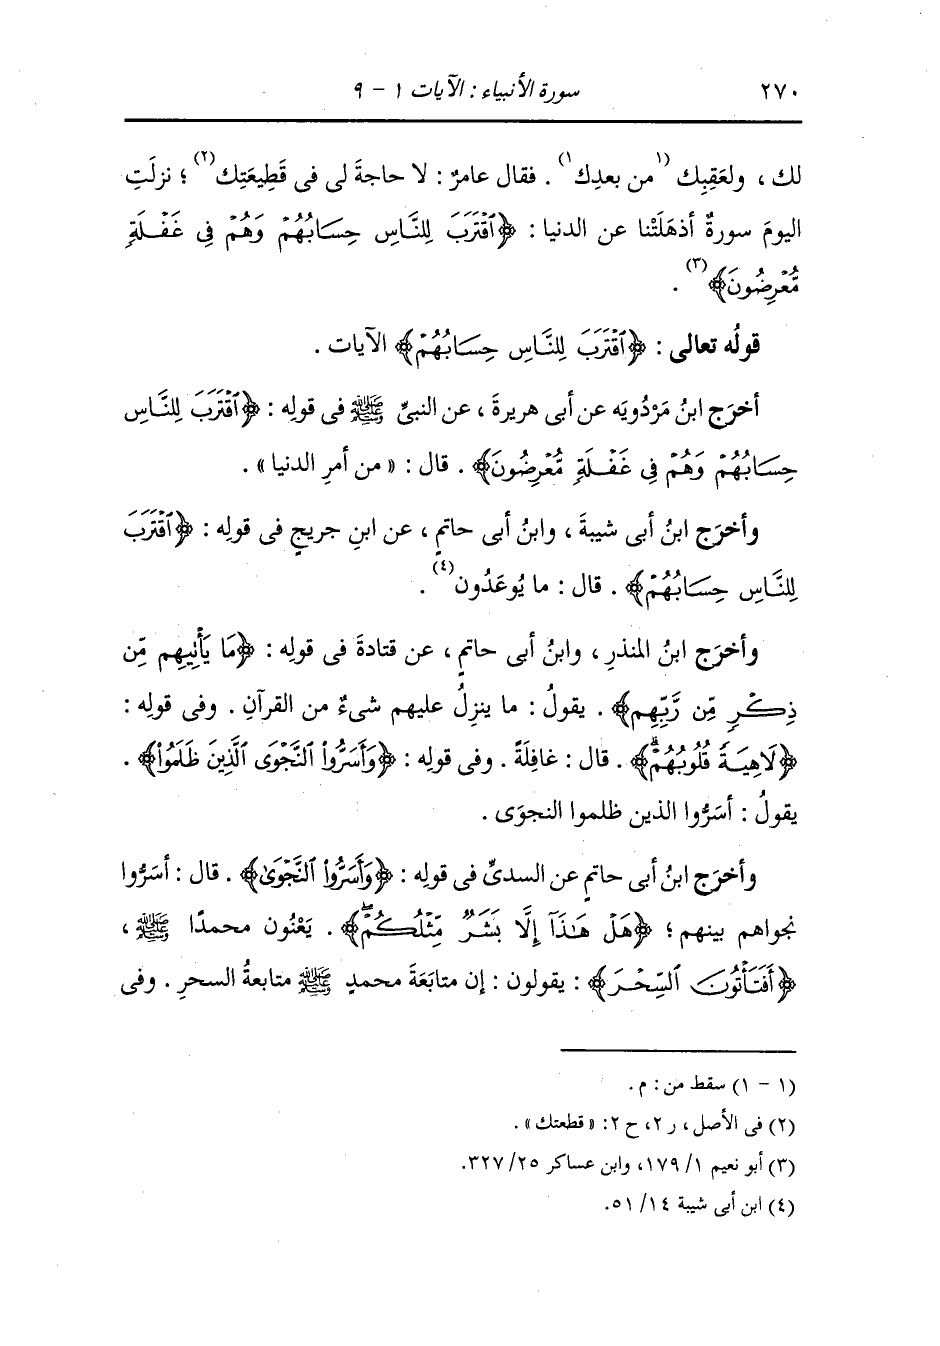 ٢٧٠ سورة الأنبياء : الآيات ١ - ٩
لك ، ولعَقِبِك (١من بعدِك١) . فقال عامرٌ : لا حاجةَ لى فى قَطِيعَتِك(٢) ؛ نزلَتِ
اليومَ سورةٌ أذهَلَتْنا عن الدنيا : ﴿ٱقْتَرَبَ لِلنَّاسِ حِسَابُهُمْ وَهُمْ فِى غَفْلَةٍ
مُّعْرِضُونَ﴾(٣) .
قولُه تعالى : ﴿ٱقْتَرَبَ لِلنَّاسِ حِسَابُهُمْ﴾ الآيات .
أخرَج ابنُ مَرْدُويَه عن أبى هريرةَ ، عن النبىِّ ﷺ فى قولِه : ﴿ٱقْتَرَبَ لِلنَّاسِ
حِسَابُهُمْ وَهُمْ فِى غَفْلَةٍ مُّعْرِضُونَ﴾ . قال : « من أمرِ الدنيا » .
وأخرَج ابنُ أبى شيبةَ ، وابنُ أبى حاتمٍ ، عن ابنِ جريجٍ فى قولِه : ﴿ٱقْتَرَبَ
لِلنَّاسِ حِسَابُهُمْ﴾ . قال : ما يُوعَدُون(٤) .
وأخرَج ابنُ المنذرِ ، وابنُ أبى حاتمٍ ، عن قتادةَ فى قولِه : ﴿مَا يَأْتِيهِم مِّن
ذِكْرٍ مِّن رَّبِّهِم﴾ . يقولُ : ما ينزِلُ عليهم شىءٌ من القرآنِ . وفى قولِه :
﴿لَاهِيَةً قُلُوبُهُمْۗ﴾ . قال : غافِلَةً . وفى قولِه : ﴿وَأَسَرُّواْ ٱلنَّجْوَى ٱلَّذِينَ ظَلَمُواْ﴾ .
يقولُ : أسَرُّوا الذين ظلموا النجوَى .
وأخرَج ابنُ أبى حاتمٍ عن السدىِّ فى قولِه : ﴿وَأَسَرُّواْ ٱلنَّجْوَى﴾ . قال : أسَرُّوا
نجواهم بينهم ؛ ﴿هَلْ هَٰذَآ إِلَّا بَشَرٌ مِّثْلُكُمْۖ﴾ . يَعْنُون محمدًا ﷺ ،
﴿أَفَتَأْتُونَ ٱلسِّحْرَ﴾ : يقولون : إن متابَعَةَ محمدٍ ﷺ متابعةُ السحرِ . وفى
(١ - ١) سقط من : م .
(٢) فى الأصل ، ر ٢، ح ٢: « قطعتك » .
(٣) أبو نعيم ١/ ١٧٩، وابن عساكر ٢٥/ ٣٢٧.
(٤) ابن أبى شيبة ١٤/ ٥١.